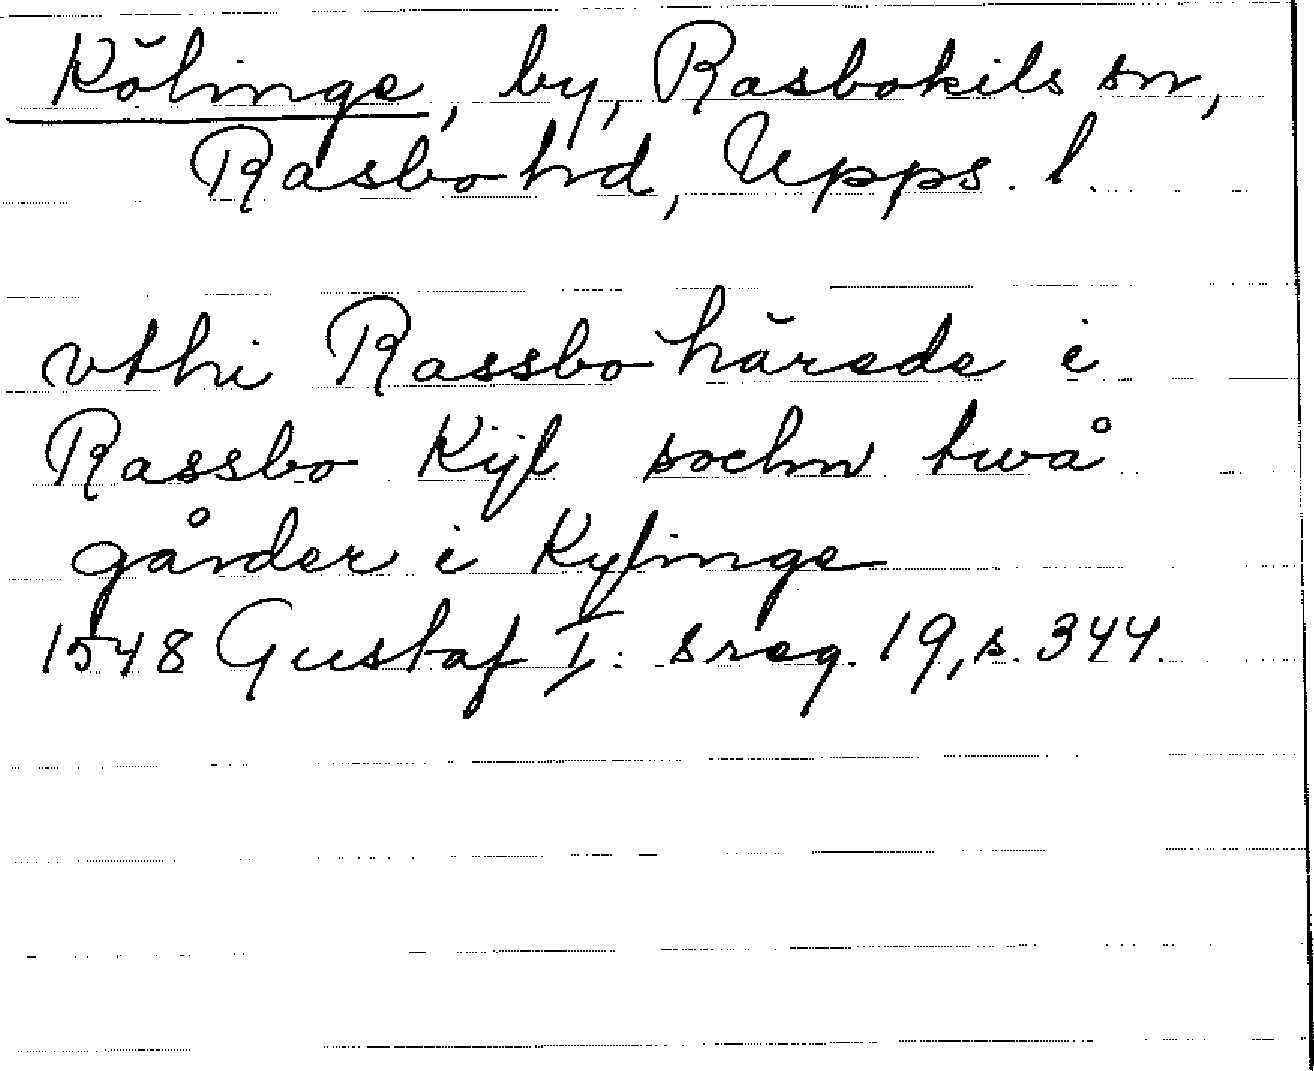 Kölinge, by, Rasbokils sn,
Rasbo hd, Upps. l.
vthi Rassbo härede i
Rassbo Kÿl sochn twå
gårder i Kylinge
1548 Gustaf I: s reg. 19, s. 344.